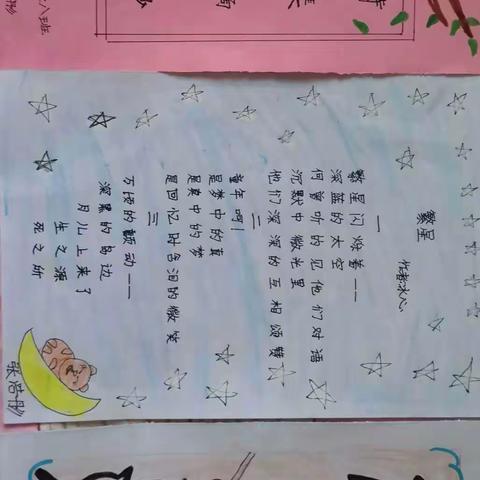 繁星
作者:冰心
一
繁星闪烁着——
深蓝的太空
何曾听的见他们对语
沉默中 微光里
他们深深的互相颂赞
二
童年 呵!
是梦中的真
是真中的梦
是回忆时含泪的微笑
三
万顷的颤动——
深黑的岛边
月儿上来了
生之源
死之所
八班